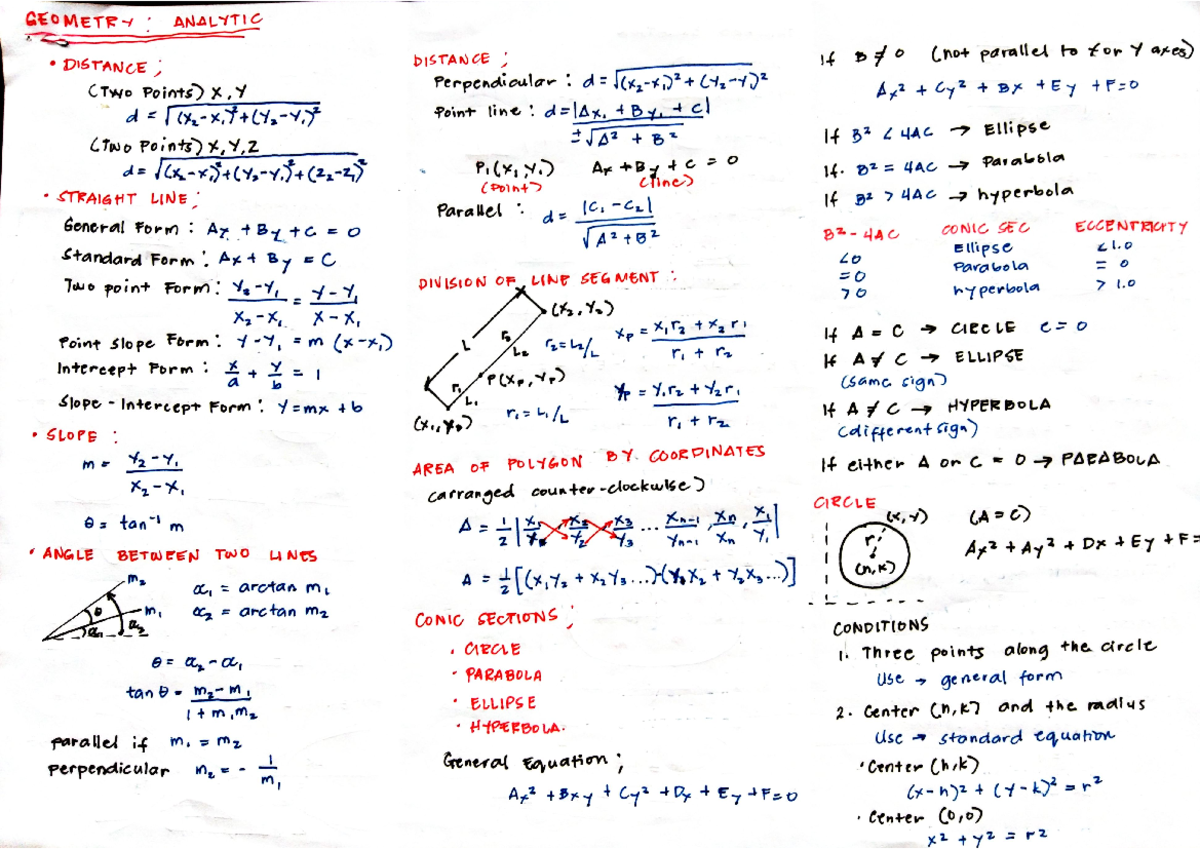 GEOMETRY : ANALYTIC
• DISTANCE ;
(Two Points) X, Y
d = √(x₂-x₁)²+(y₂-y₁)²
(Two Points) X, Y, Z
d = √(x₂-x₁)²+(y₂-y₁)²+(z₂-z₁)²
• STRAIGHT LINE ;
General Form : Ax + By + C = 0
Standard Form : Ax + By = C
Two point Form : y₂-y₁ / x₂-x₁ = y-y₁ / x-x₁
Point slope Form : y-y₁ = m (x-x₁)
Intercept Form : x/a + y/b = 1
Slope - Intercept Form : y = mx + b
• SLOPE :
m = y₂-y₁ / x₂-x₁
θ = tan⁻¹ m
• ANGLE BETWEEN TWO LINES
m₂
m₁
θ
α₁
α₂
α₁ = arctan m₁
α₂ = arctan m₂
θ = α₂ - α₁
tan θ = m₂ - m₁ / 1 + m₁m₂
parallel if m₁ = m₂
perpendicular m₂ = - 1/m₁
DISTANCE ;
Perpendicular : d = √(x₂-x₁)²+(y₂-y₁)²
Point line : d = |Ax₁ + By₁ + C| / ±√A² + B²
P₁(x₁, y₁) Ax + By + C = 0
(Point) (line)
Parallel : d = |C₁ - C₂| / √A² + B²
DIVISION OF LINE SEGMENT :
(x₂, y₂)
L
r₂
L₂
r₂ = L₂/L
P(xₚ, yₚ)
r₁
L₁
r₁ = L₁/L
xₚ = x₁r₂ + x₂r₁ / r₁ + r₂
yₚ = y₁r₂ + y₂r₁ / r₁ + r₂
AREA OF POLYGON BY COORDINATES
(arranged counter-clockwise)
A = 1/2 | x₁ x₂ x₃ ... xₙ₋₁, xₙ, x₁ | / y₂ y₃ yₙ₋₁ xₙ y₁
A = 1/2 [(x₁y₂ + x₂y₃...)-(y₁x₂ + y₂x₃...)]
CONIC SECTIONS ;
• CIRCLE
• PARABOLA
• ELLIPSE
• HYPERBOLA.
General Equation ;
Ax² + Bxy + Cy² + Dx + Ey + F = 0
If B ≠ 0 (not parallel to x or y axes)
Ax² + Cy² + Bx + Ey + F = 0
If B² < 4AC → Ellipse
If. B² = 4AC → Parabola
If B² > 4AC → hyperbola
B² - 4AC CONIC SEC ECCENTRICITY
<0 Ellipse <1.0
=0 Parabola = 0
>0 hyperbola > 1.0
If A = C → CIRCLE C = 0
If A ≠ C → ELLIPSE
(same sign)
If A ≠ C → HYPERBOLA
(different sign)
If either A or C = 0 → PARABOLA
CIRCLE
(x, y)
r
(h, k)
(A = C)
Ax² + Ay² + Dx + Ey + F =
CONDITIONS
1. Three points along the circle
Use → general form
2. Center (h, k) and the radius
Use → standard equation
• Center (h, k)
(x - h)² + (y - k)² = r²
• Center (0, 0)
x² + y² = r²